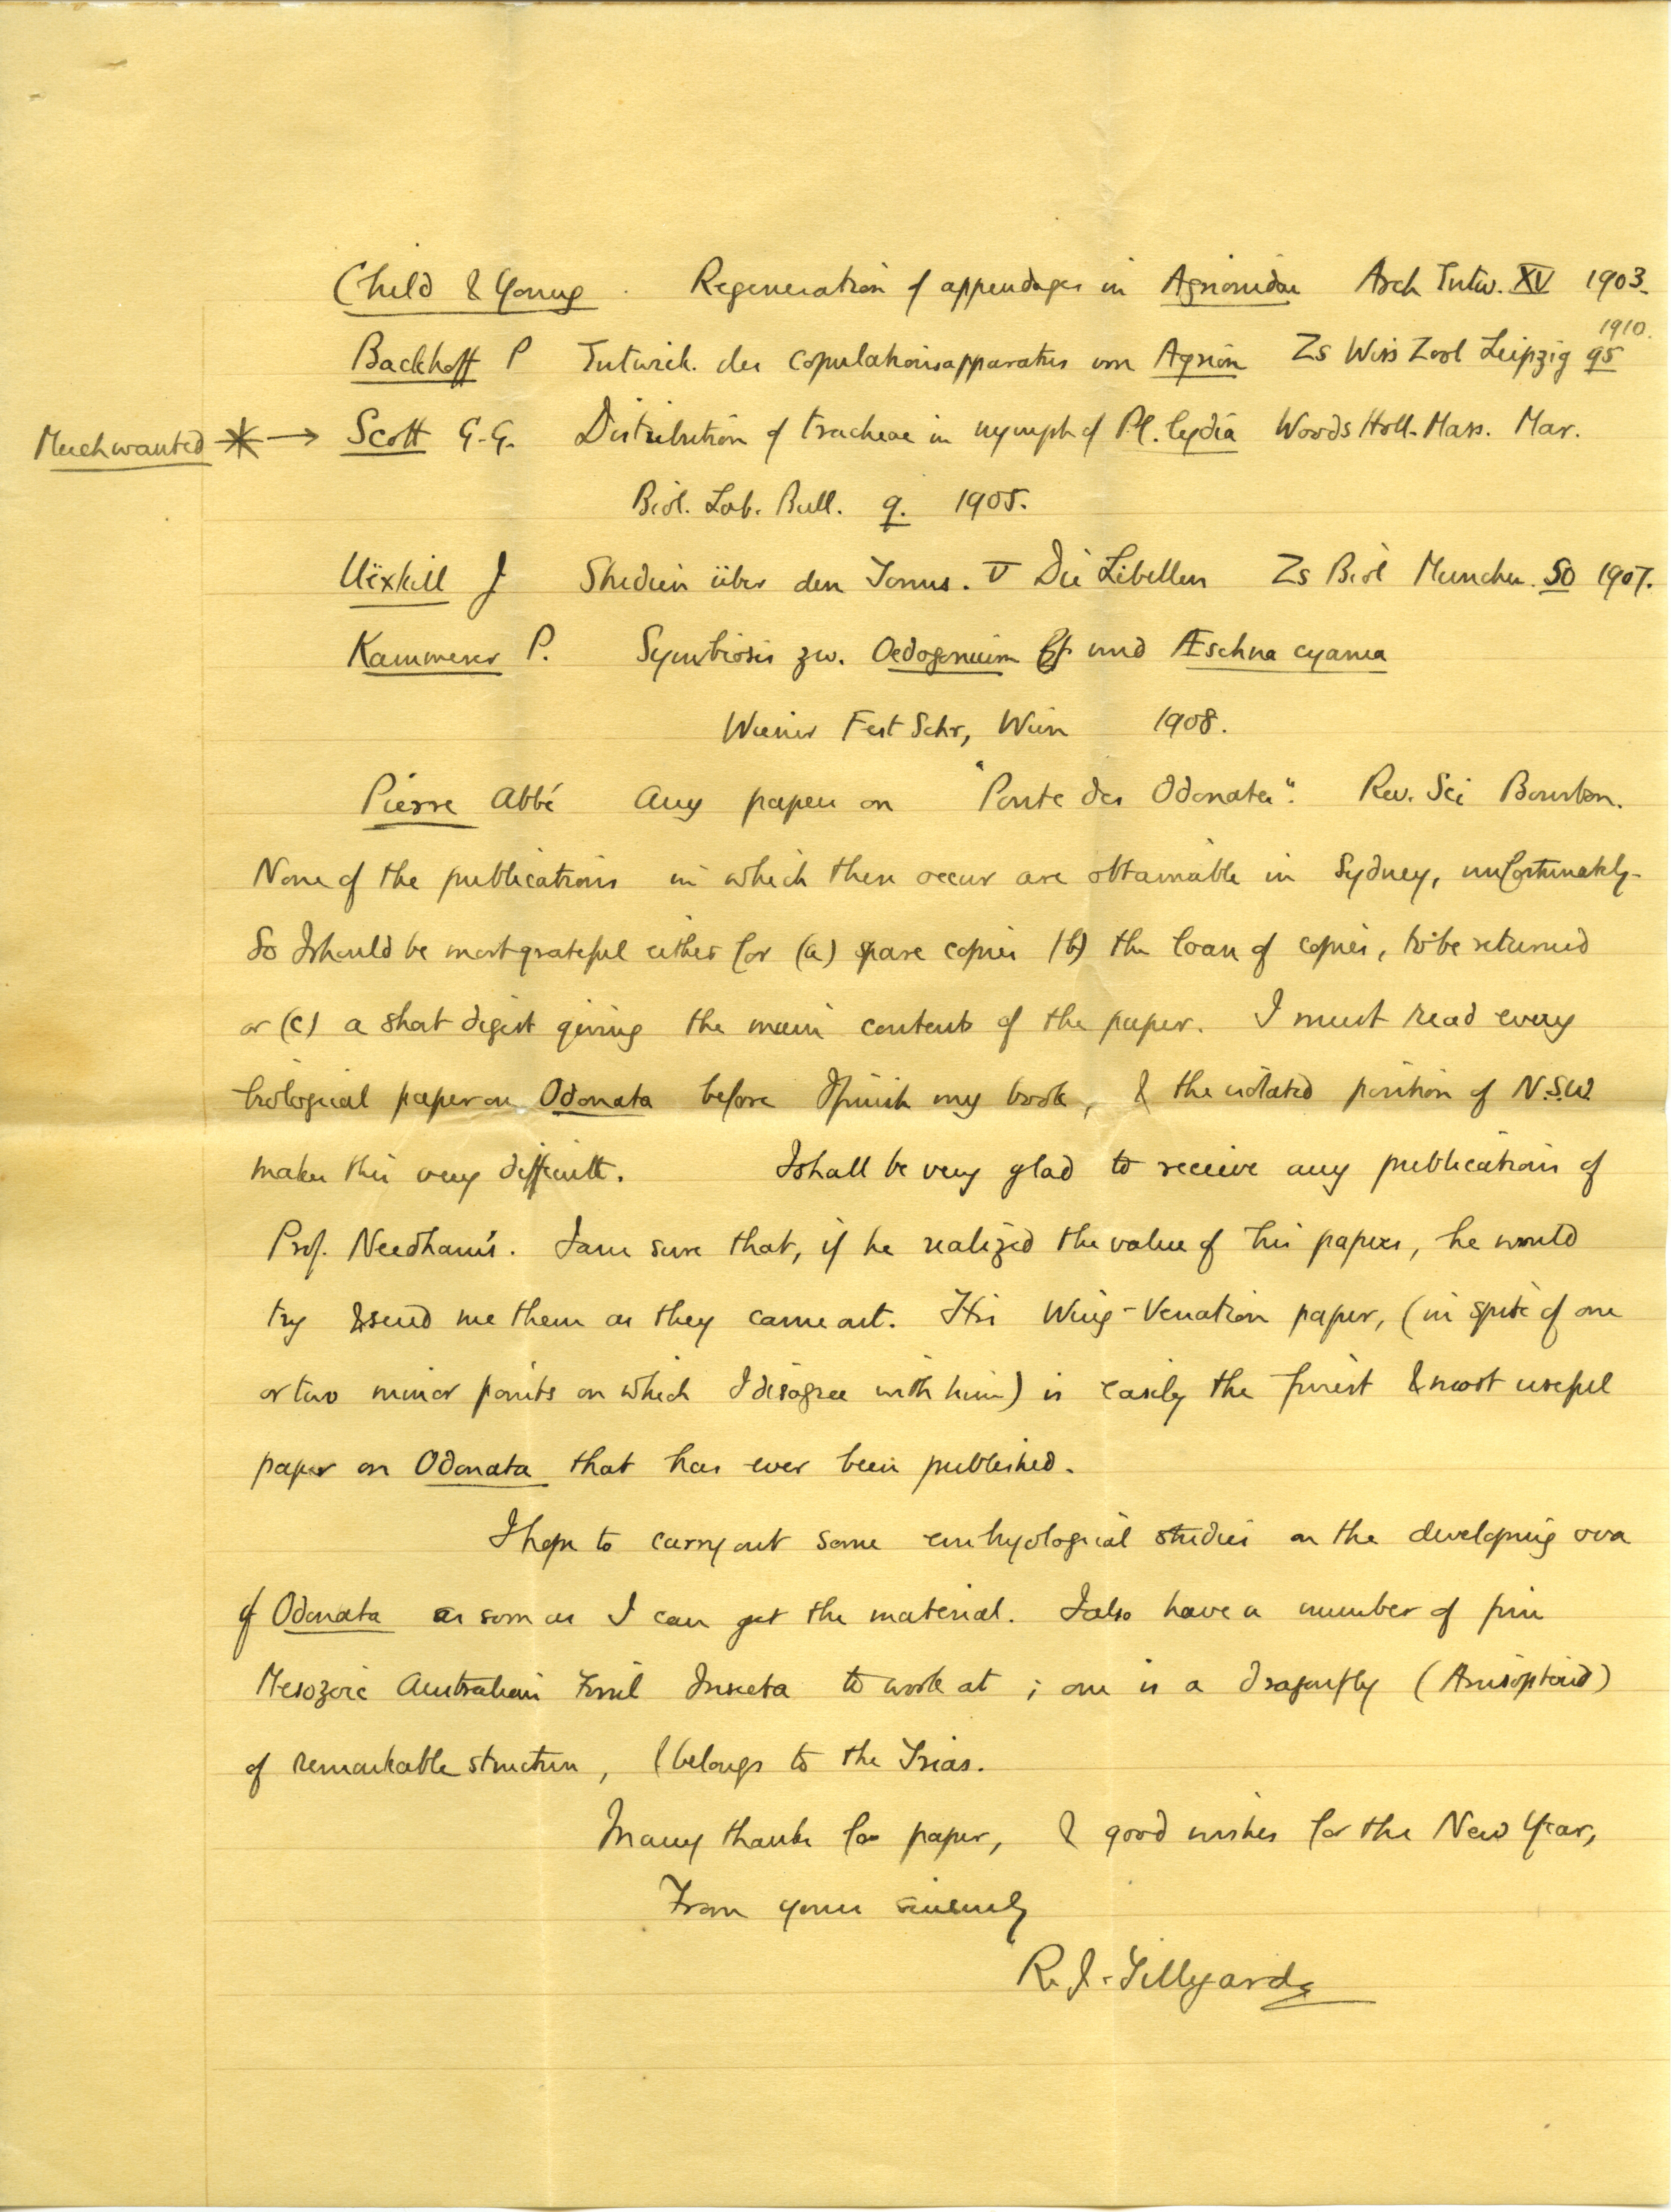 Child & Young. Regeneration of appendages in Agrionidae Arch Entw. XV 1903.
Backhoff P Entwick. des Copulationsapparatus von Agrion Zs Wiss Zool Leipzig 95 1910.
Much wanted * → Scott G.G. Distribution of tracheae in nymph of Pl. lydia Woods Holl. Mass. Mar.
Biol. Lab. Bull. 9. 1905.
Uëxkill J Studien über den Tonus. V Die Libellen Zs Biol Munchen. 50 1907.
Kammerer P. Symbiosis zw. Oedogonium und Æschna cyanea
Wiener Fest Schr, Wien 1908.
Pierre Abbé Any papers on "Ponte des Odonates". Rev. Sci Bourbon.
None of the publications in which these occur are obtainable in Sydney, unfortunately.
So I should be most grateful either for (a) spare copies (b) the loan of copies, to be returned
or (c) a short digest giving the main contents of the paper. I must read every
biological paper on Odonata before I finish my book, & the isolated position of N.S.W.
makes this very difficult. I shall be very glad to receive any publications of
Prof. Needham's. I am sure that, if he realized the value of his papers, he would
try & send me them as they came out. His Wing-Venation paper, (in spite of one
or two minor points on which I disagree with him) is easily the finest & most useful
paper on Odonata that has ever been published.
I hope to carry out some embryological studies on the developing ova
of Odonata as soon as I can get the material. I also have a number of fine
Mesozoic Australian Fossil Insecta to work at; one is a dragonfly (Anisopterid)
of remarkable structure, & belongs to the Trias.
Many thanks for paper, & good wishes for the New Year,
From yours sincerely
R. J. Tillyard